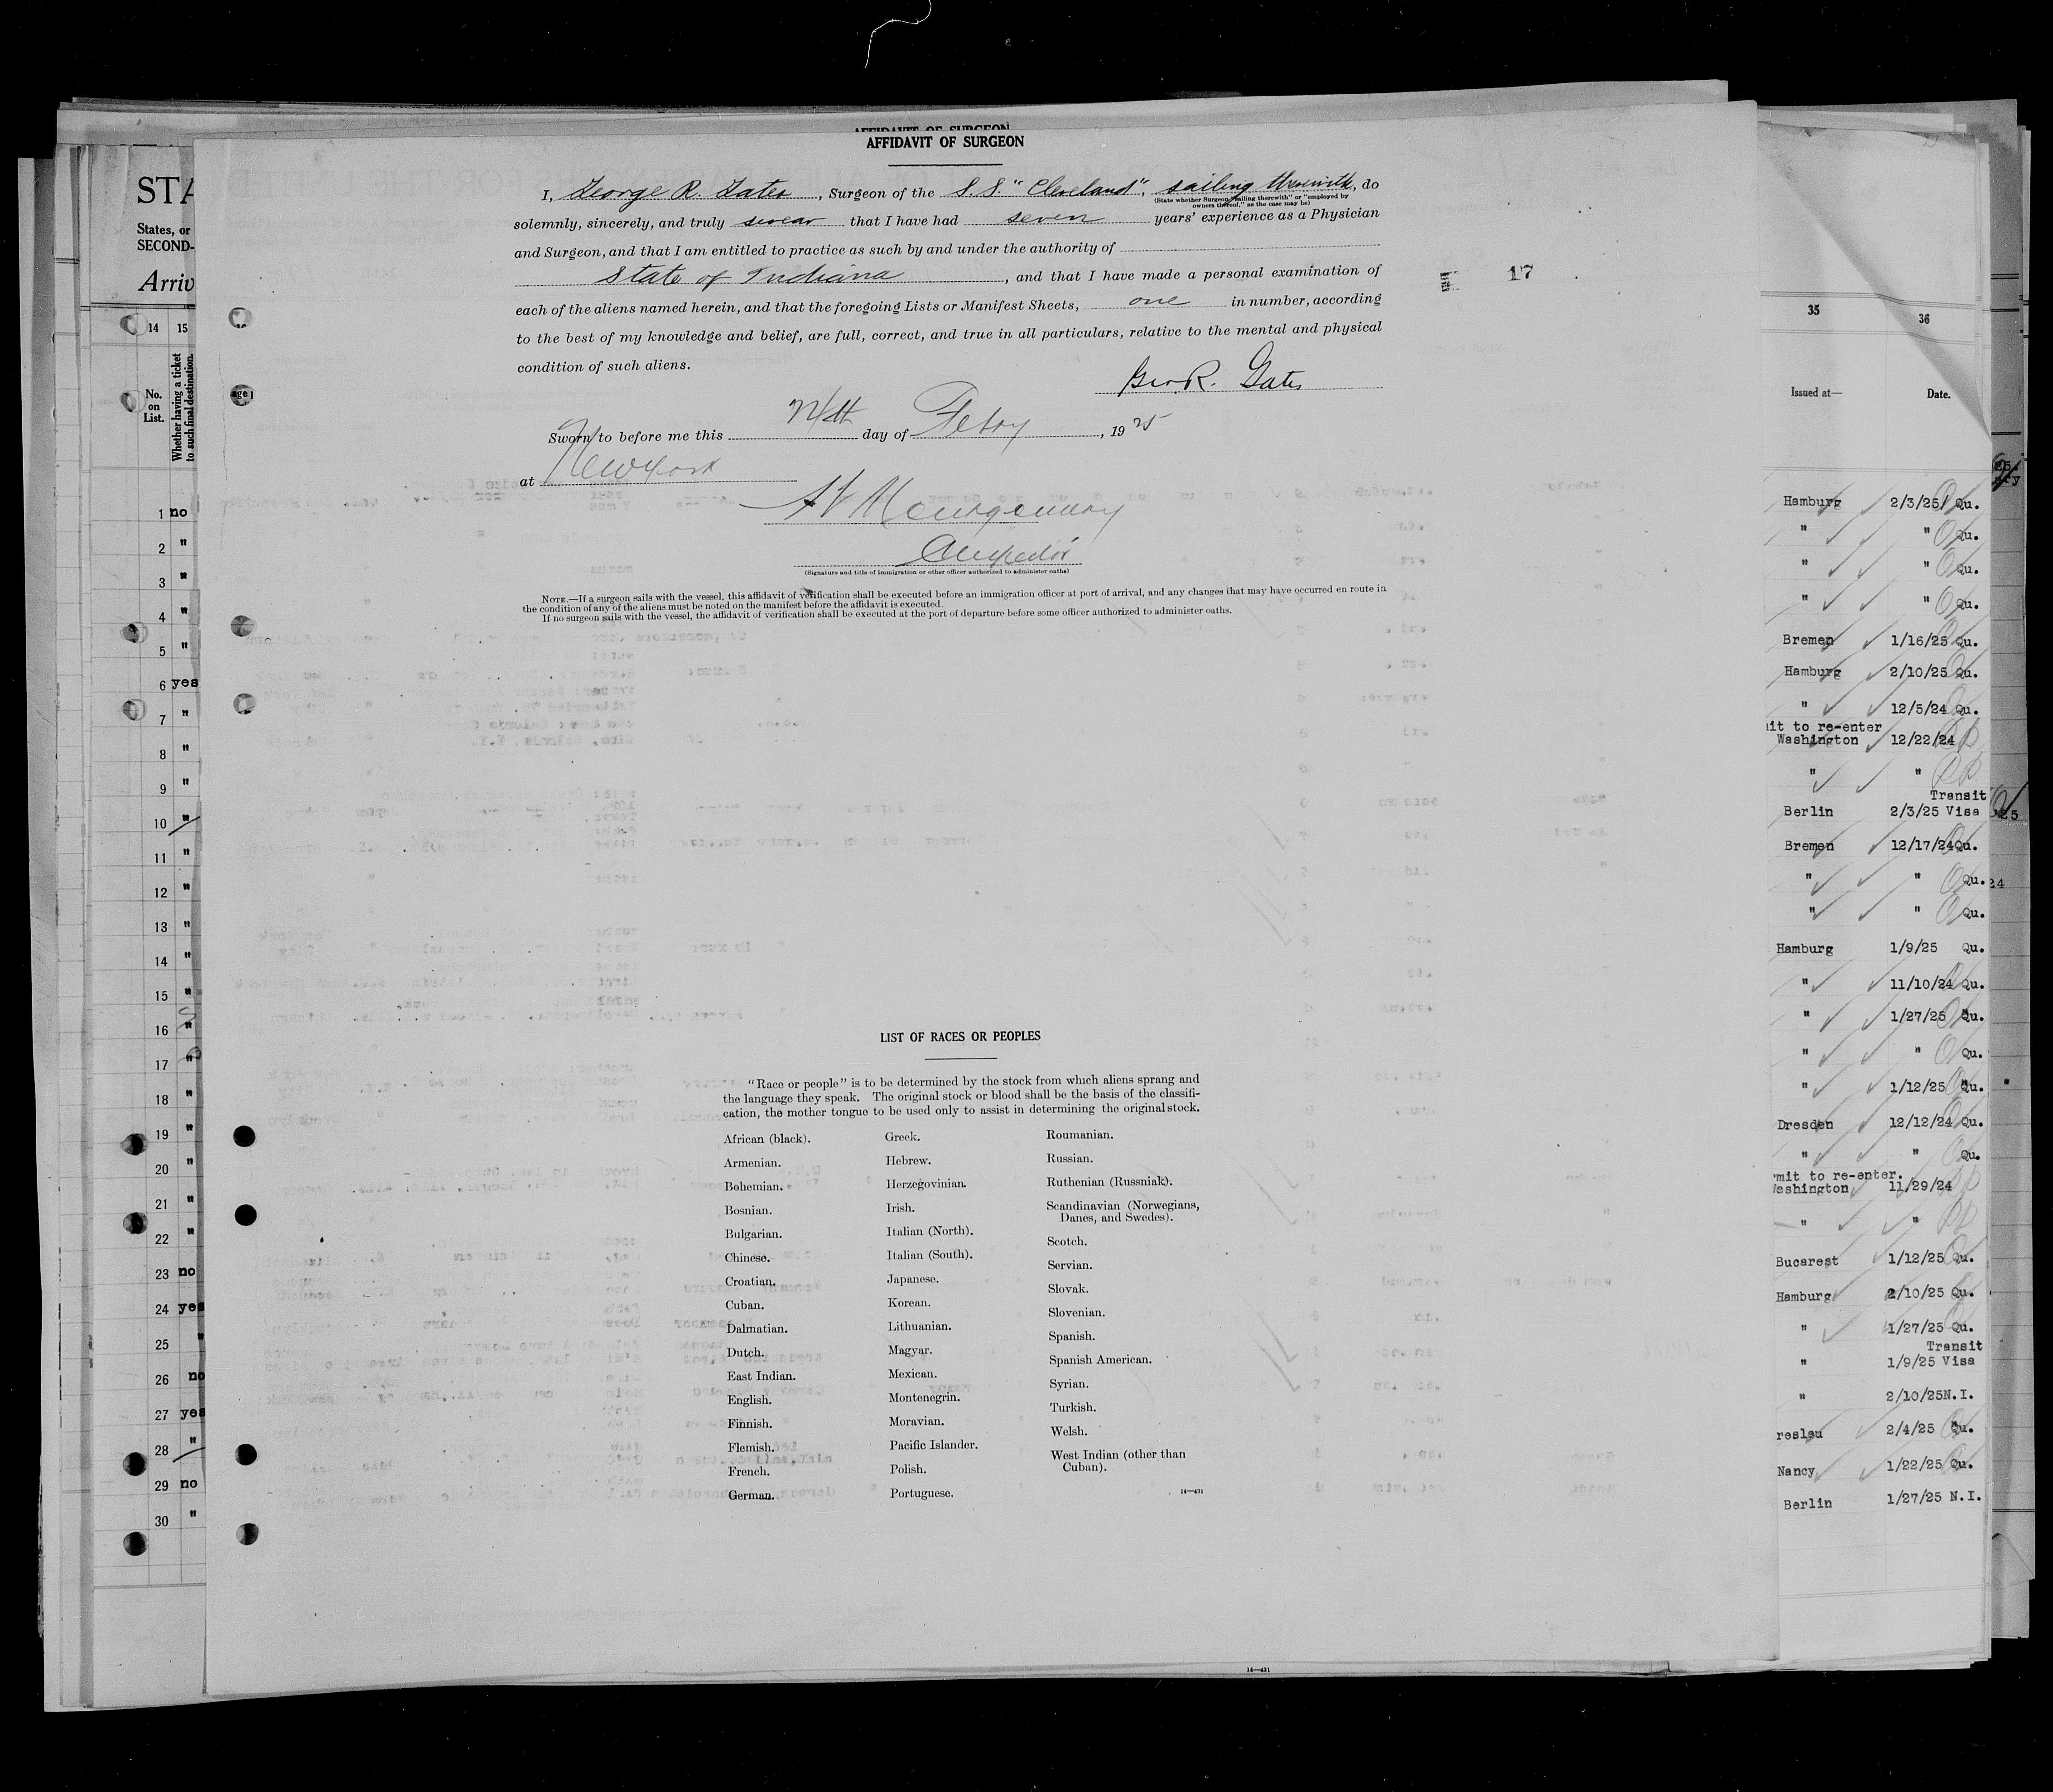 AFFIDAVIT OF SURGEON
AFFIDAVIT OF SURGEON
I, George R. Gates, Surgeon of the S.S. "Cleveland", sailing therewith, do
(State whether Surgeon "sailing therewith" or "employed by
owners thereof," as the case may be)
solemnly, sincerely, and truly swear that I have had seven years' experience as a Physician
and Surgeon, and that I am entitled to practice as such by and under the authority of
State of Indiana, and that I have made a personal examination of
each of the aliens named herein, and that the foregoing Lists or Manifest Sheets, one in number, according
to the best of my knowledge and belief, are full, correct, and true in all particulars, relative to the mental and physical
condition of such aliens.
Geo. R. Gates
Sworn to before me this day of Febry, 1925
at New York
Montgomery
(Signature and title of immigration or other officer authorized to administer oaths)
NOTE.—If a surgeon sails with the vessel, this affidavit of verification shall be executed before an immigration officer at port of arrival, and any changes that may have occurred en route in
the condition of any of the aliens must be noted on the manifest before the affidavit is executed.
If no surgeon sails with the vessel, the affidavit of verification shall be executed at the port of departure before some officer authorized to administer oaths.
17
LIST OF RACES OR PEOPLES
"Race or people" is to be determined by the stock from which aliens sprang and
the language they speak. The original stock or blood shall be the basis of the classifi-
cation, the mother tongue to be used only to assist in determining the original stock.
African (black).
Armenian.
Bohemian.
Bosnian.
Bulgarian.
Chinese.
Croatian.
Cuban.
Dalmatian.
Dutch.
East Indian.
English.
Finnish.
Flemish.
French.
German.
Greek.
Hebrew.
Herzegovinian.
Irish.
Italian (North).
Italian (South).
Japanese.
Korean.
Lithuanian.
Magyar.
Mexican.
Montenegrin.
Moravian.
Pacific Islander.
Polish.
Portuguese.
Roumanian.
Russian.
Ruthenian (Russniak).
Scandinavian (Norwegians,
Danes, and Swedes).
Scotch.
Servian.
Slovak.
Slovenian.
Spanish.
Spanish American.
Syrian.
Turkish.
Welsh.
West Indian (other than
Cuban).
14—431
14—431
STA
States, or
SECOND-
Arriv
14 15
No.
on
List.
Whether having a ticket
to such final destination.
1 no
2 "
3 "
4 "
5 "
6 yes
7 "
8 "
9 "
10 "
11 "
12 "
13 "
14 "
15 "
16 "
17 "
18 "
19 "
20 "
21 "
22 "
23 no
24 yes
25 "
26 no
27 yes
28 "
29 no
30 "
35 36
Issued at— Date.
Hamburg 2/3/25 Qu.
" " Qu.
" " Qu.
" " Qu.
Bremen 1/16/25 Qu.
Hamburg 2/10/25 Qu.
" 12/5/24 Qu.
it to re-enter
Washington 12/22/24
" "
Transit
Berlin 2/3/25 Visa
Bremen 12/17/24 Qu.
" " Qu.
" " Qu.
Hamburg 1/9/25 Qu.
" 11/10/24 Qu.
" 1/27/25 Qu.
" " Qu.
" 1/12/25 Qu.
Dresden 12/12/24 Qu.
" " Qu.
mit to re-enter.
ashington 11/29/24
" "
Bucarest 1/12/25 Qu.
Hamburg 2/10/25 Qu.
" 1/27/25 Qu.
Transit
" 1/9/25 Visa
" 2/10/25 N.I.
reslau 2/4/25 Qu.
Nancy 1/22/25 Qu.
Berlin 1/27/25 N.I.